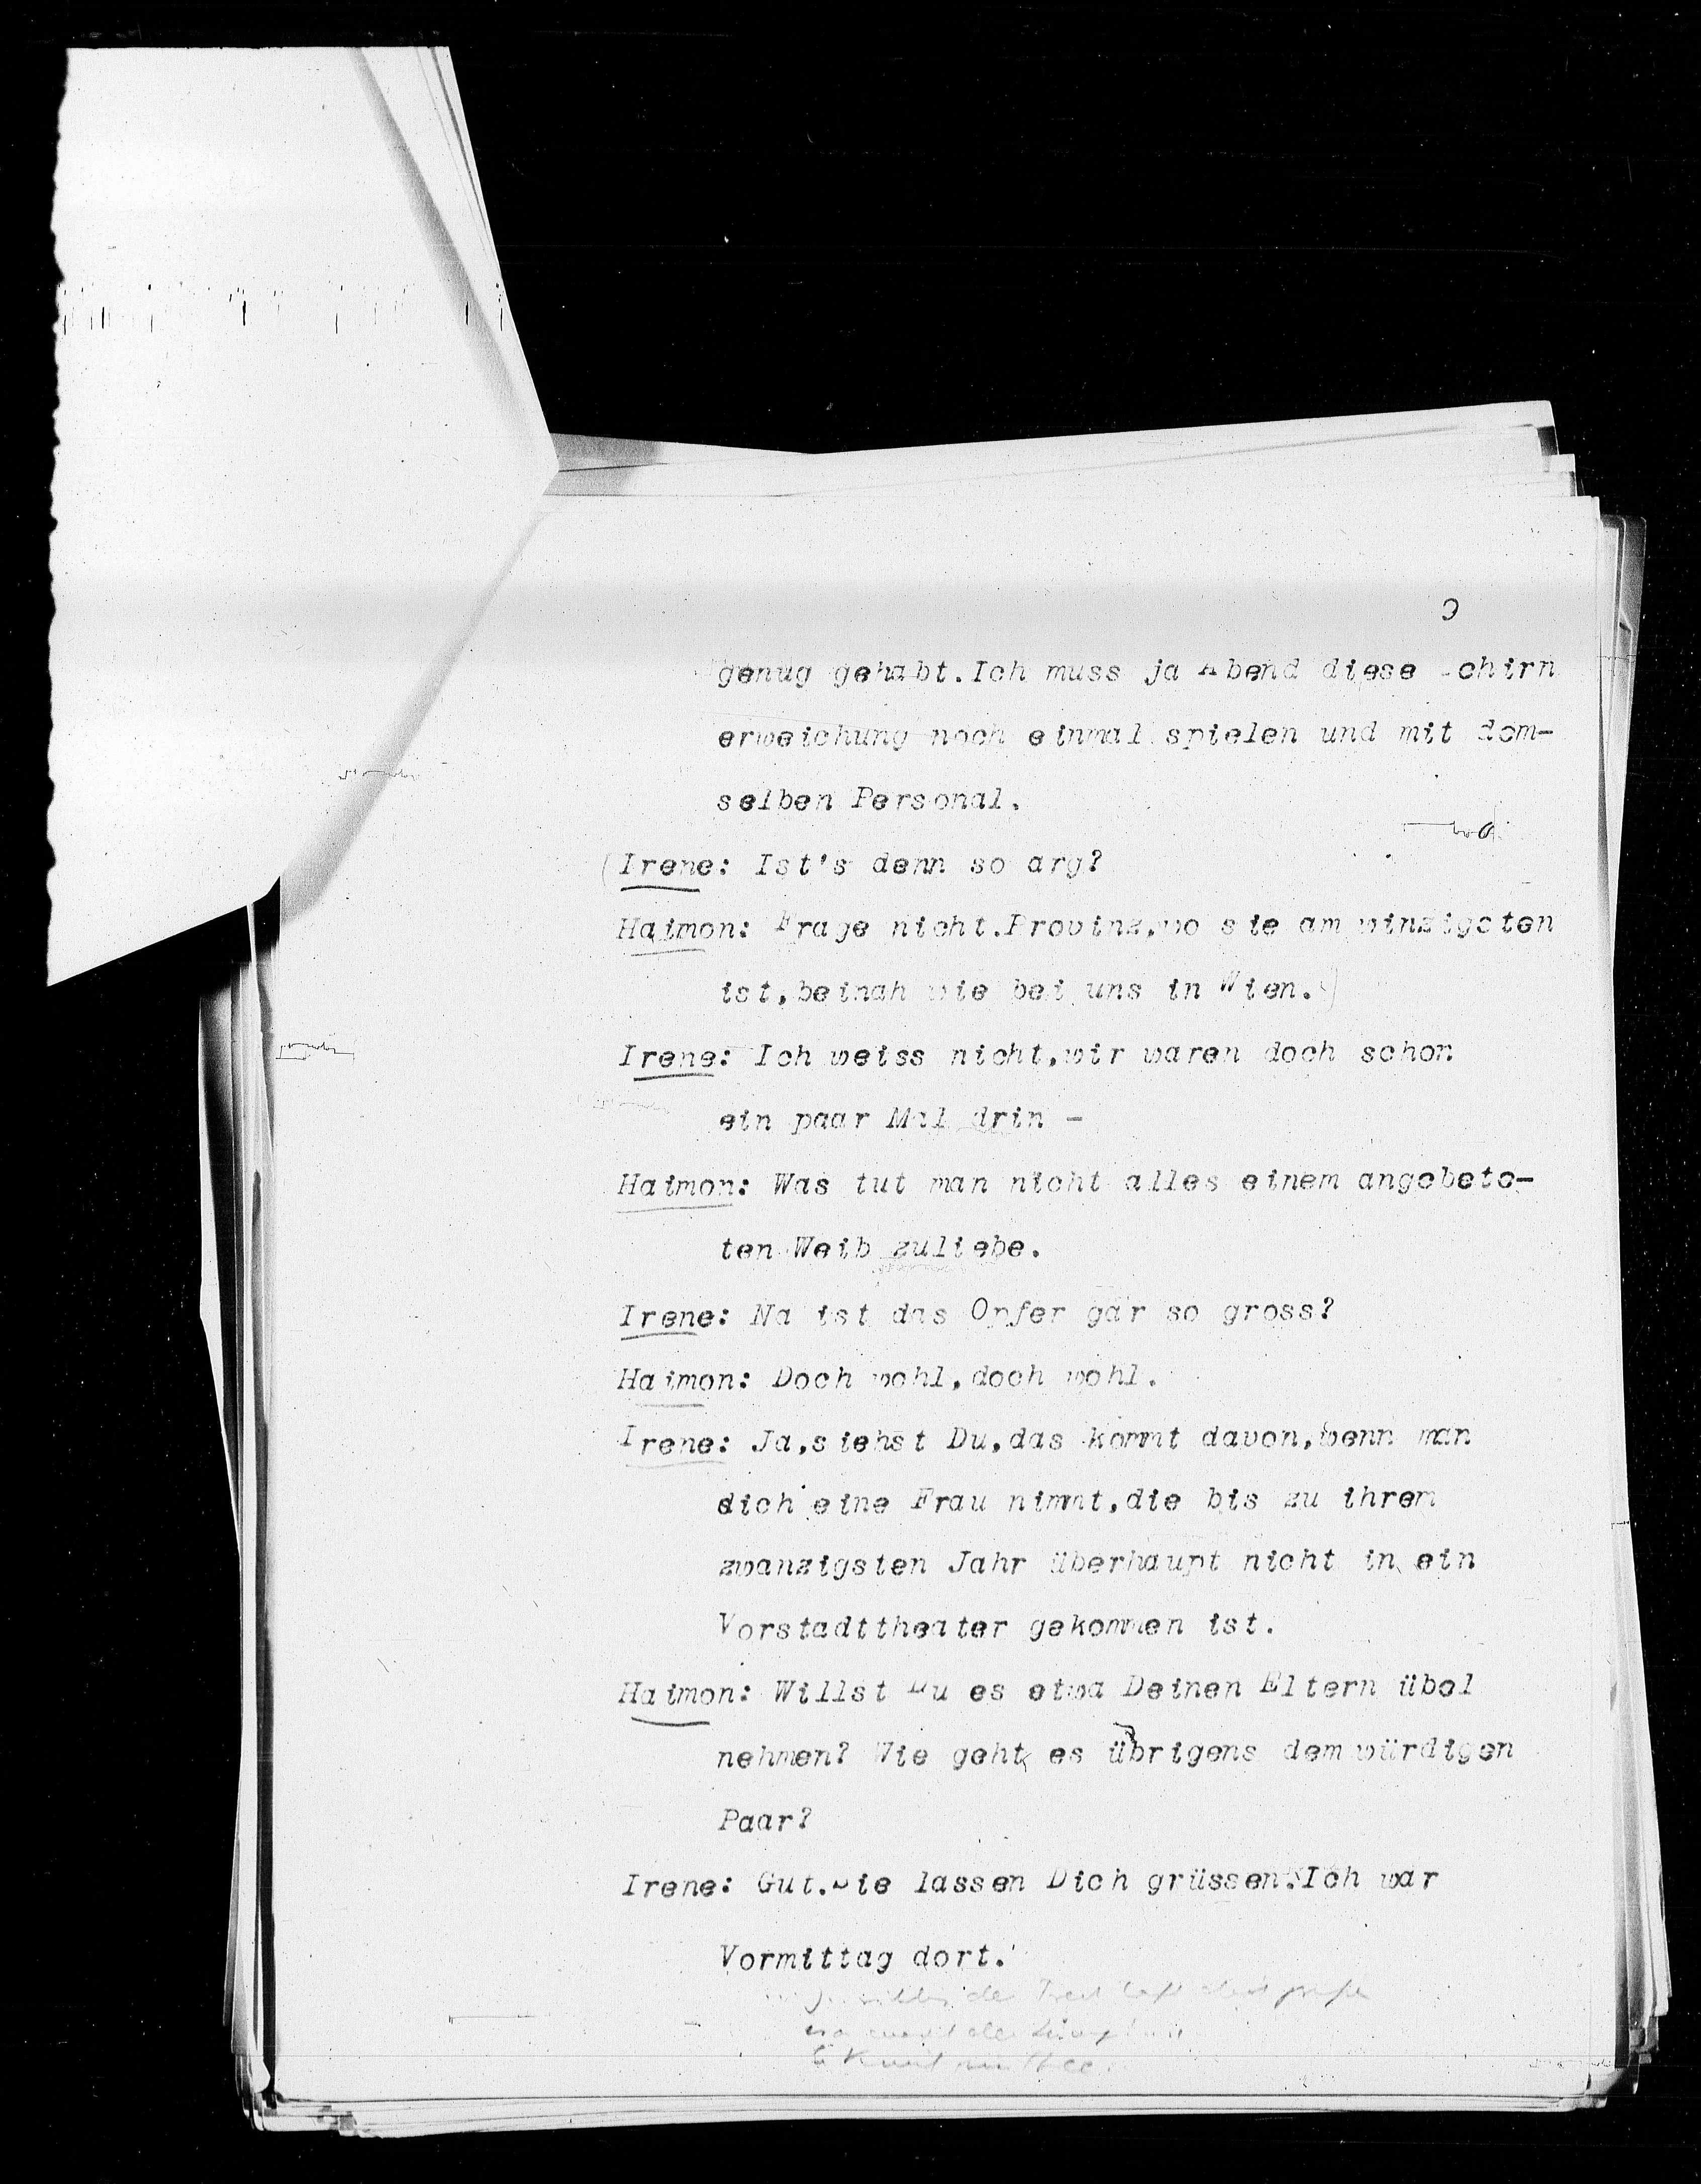 genug gehabt.Ich muss ja Abend diese chirn
erweichung noch einmal spielen und mit dem-
selben Personal.
(Irene: Ist's denn so arg?
Haimon: Frage nicht.Provinz,wo sie am winzigsten
ist,beinah wie bei uns in Wien.)
Irene: Ich weiss nicht,wir waren doch schon
ein paar Mal drin -
Haimon: Was tut man nicht alles einem angebete-
ten Weib zuliebe.
Irene: Na ist das Opfer gar so gross?
Haimon: Doch wohl,doch wohl.
Irene: Ja,siehst Du,das kommt davon,wenn man
sich eine Frau nimmt,die bis zu ihrem
zwanzigsten Jahr überhaupt nicht in ein
Vorstadttheater gekommen ist.
Haimon: Willst Du es etwa Deinen Eltern übel
nehmen? Wie geht es übrigens dem würdigen
Paar?
Irene: Gut.Sie lassen Dich grüssen.Ich war
Vormittag dort.